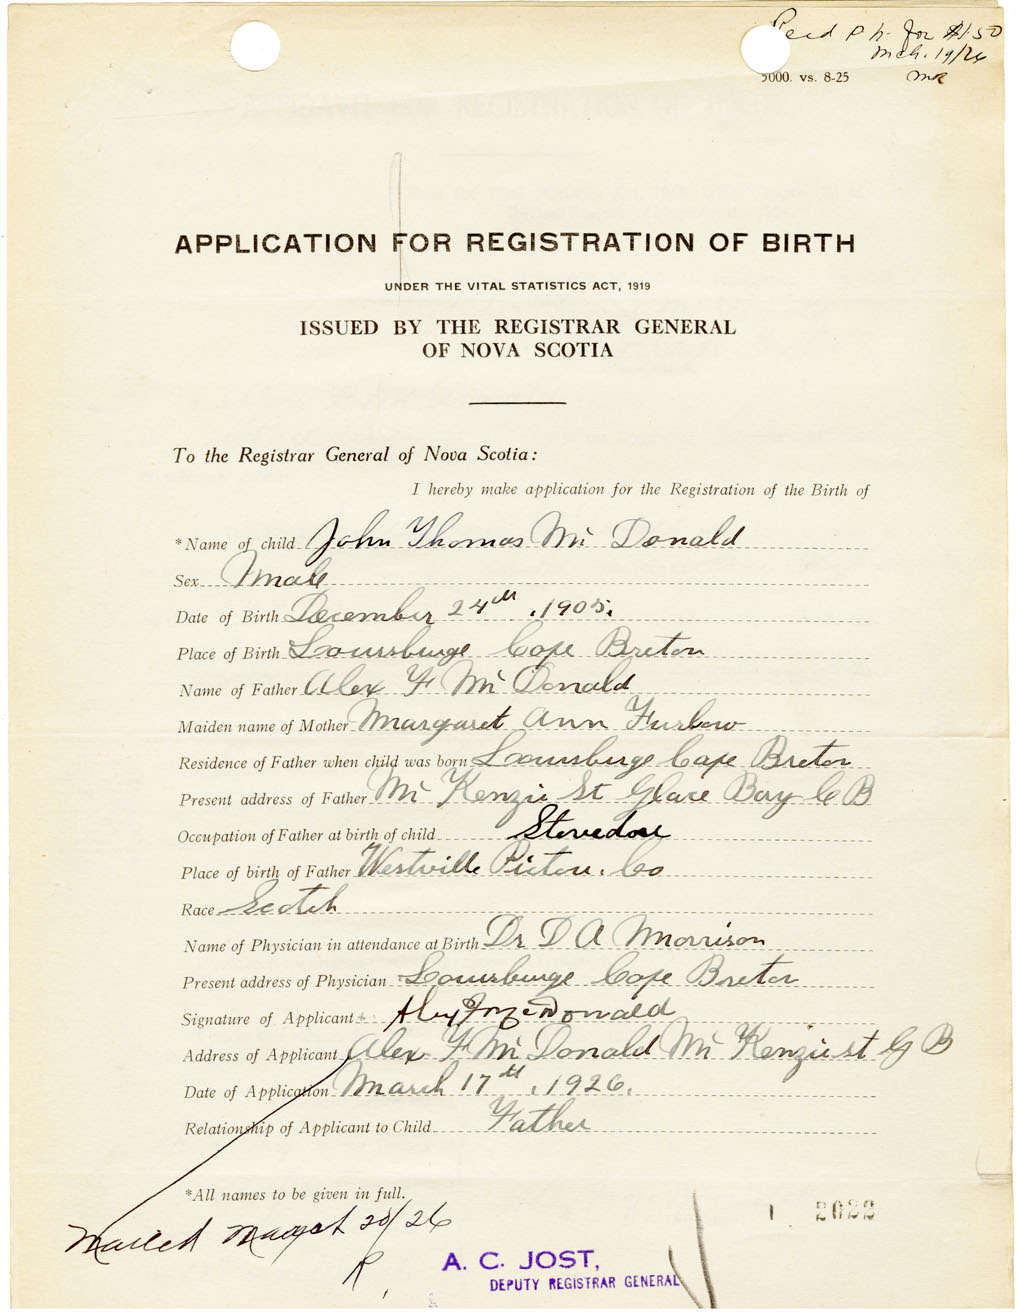 Recd P.N. for $1.50
Mch. 19/26
5000. vs. 8-25
MR
APPLICATION FOR REGISTRATION OF BIRTH
UNDER THE VITAL STATISTICS ACT, 1919
ISSUED BY THE REGISTRAR GENERAL
OF NOVA SCOTIA
To the Registrar General of Nova Scotia:
I hereby make application for the Registration of the Birth of
*Name of child John Thomas Mc Donald
Sex Male
Date of Birth December 24th, 1905.
Place of Birth Louisburge Cape Breton
Name of Father Alex F Mc Donald
Maiden name of Mother Margaret Ann Furlow
Residence of Father when child was born Louisburge Cape Breton
Present address of Father Mc Kenzie St Glace Bay C B
Occupation of Father at birth of child Stevedore
Place of birth of Father Westville Pictou. Co
Race Scotch
Name of Physician in attendance at Birth Dr D A Morrison
Present address of Physician Louisburge Cape Breton
Signature of Applicant Alex F McDonald
Address of Applicant Alex F Mc Donald Mc Kenzie st G B
Date of Application March 17th, 1926.
Relationship of Applicant to Child Father
*All names to be given in full.
Mailed March 20/26
R.
1 2022
A. C. JOST,
DEPUTY REGISTRAR GENERAL